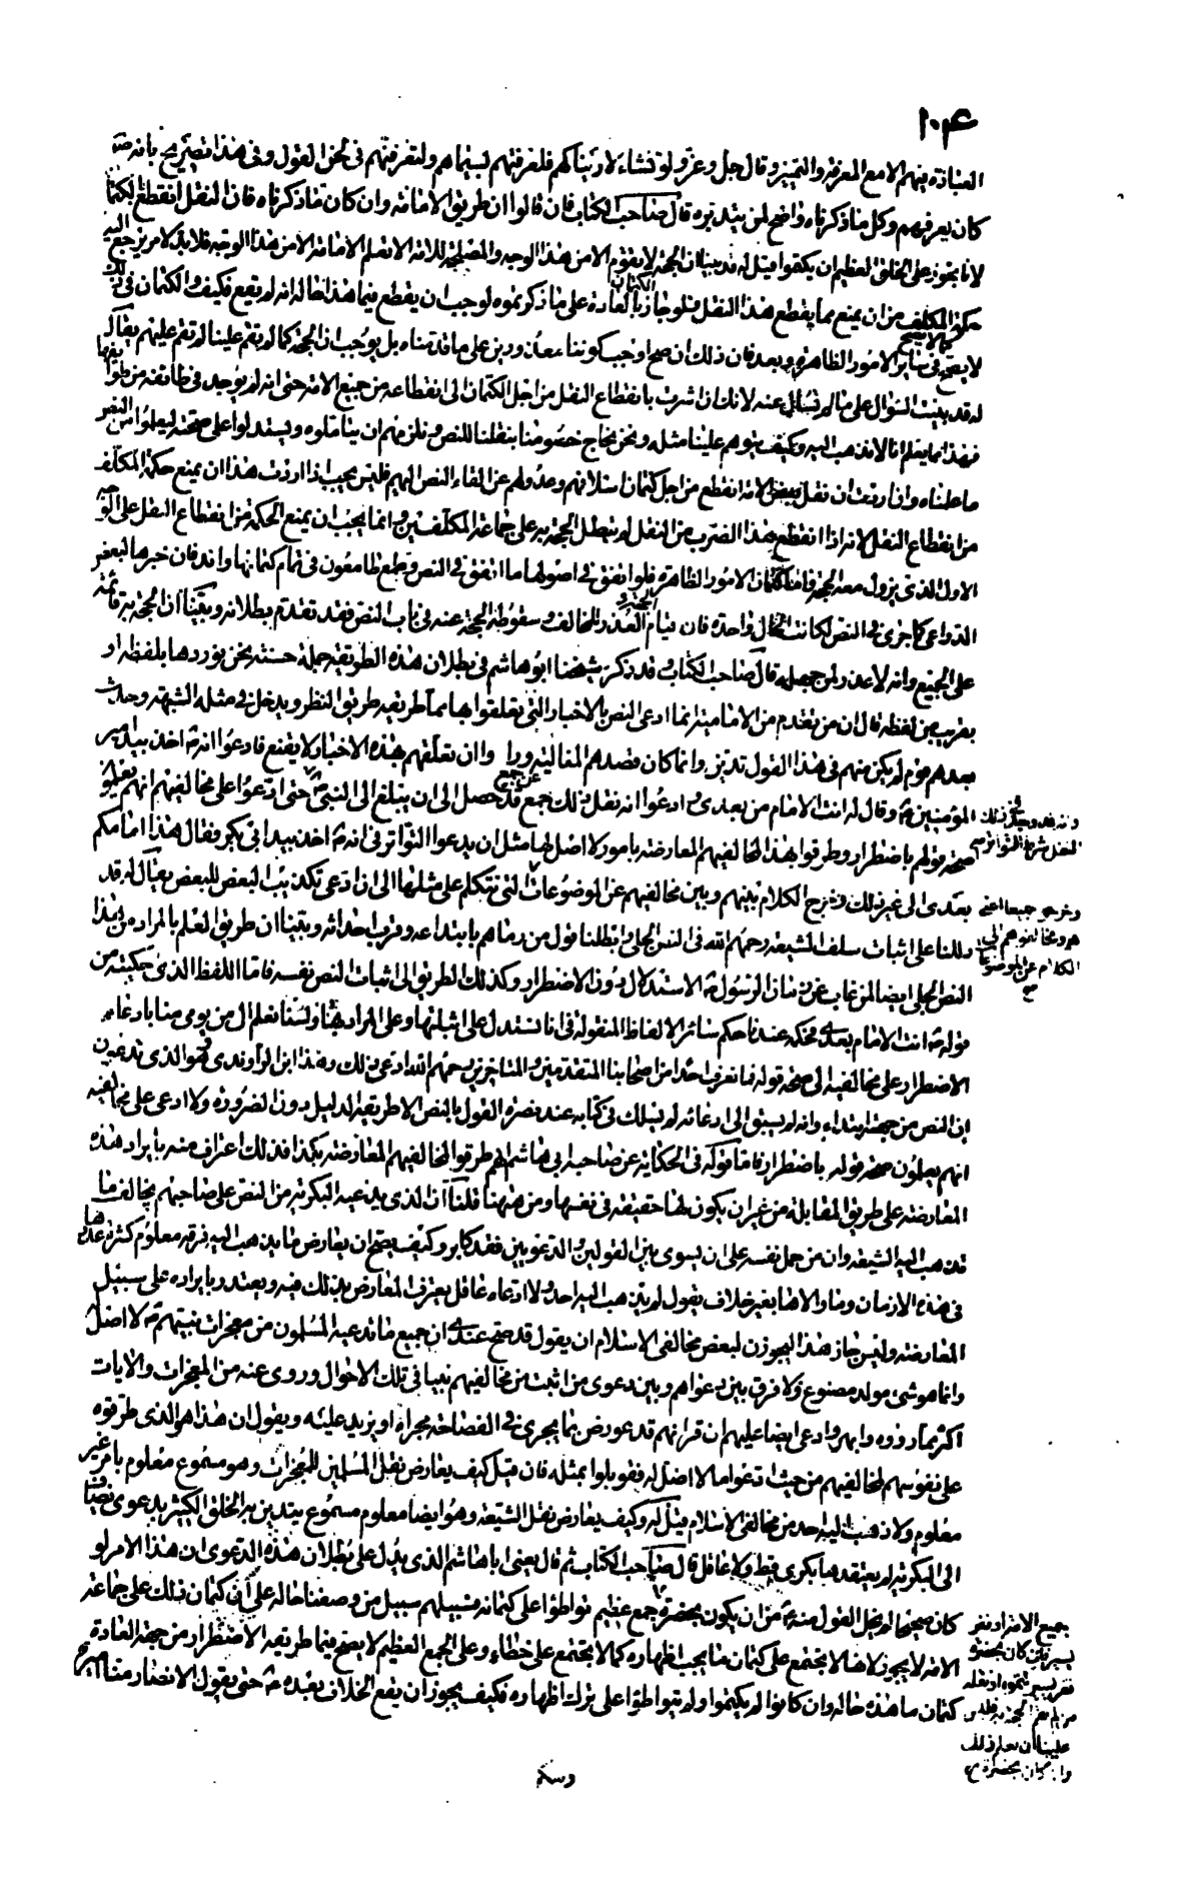 ١٠٤
العبادة منهم الا مع المعرفة والتميز وقال جل وعز ولو نشاء لاريناكهم فلعرفتهم بسيماهم ولتعرفنهم فى لحن القول وفى هذا تصريح بانه
كان يعرفهم وكل ما ذكرناه واضح لمن يتدبره قال صاحب الكتاب فان قالوا ان طريق الامامة وان كان ما ذكرناه فان النقل انقطع لكتما
لانا نجوز على الخلق العظيم ان يكتموا قيل له قد بينا ان الحجة لا يقوم الا من هذا الوجه والمصلحة للامة الا تعلم الامامة الا من هذا الوجه فلا بد لامر يرجع اليه
حكمة المكلف من ان يمنع مما يقطع هذا النقل فلو جاز الكتمان بالعادة على ما ذكرتموه لوجب ان يقطع فيما هذا حاله انه لم يقع فكيف والكتمان فى ذلك
لا يصح كما لا يصح فى سائر الامور الظاهرة وبعد فان ذلك ان صح اوجب كوننا معذورين على ما قدمناه بل يوجب ان الحجة كما لم يقم علينا لم تقم عليهم يقال
له قد بنيت السؤال على ما لم نسأل عنه لانك ان اشرت بانقطاع النقل من اجل الكتمان الى انقطاعه من جميع الامة حتى انه لم يوجد فى طائفة من طوائفها
فهذا مما يعلم انا لا نذهب اليه وكيف يتوهم علينا مثله ونحن نحاج خصومنا بنقلنا للنص ونلزمهم ان يتاملوه ويستدلوا على صحته ليعلموا من النص
ما علمناه وان اردت ان نقل بعض الامة انقطع من اجل كتمان اسلافهم وعدولهم عن القاء النص اليهم فليس يجب اذا اردت هذا ان يمنع حكمة المكلف
من انقطاع النقل لانه اذا انقطع هذا الضرب من النقل لم تبطل الحجة به على جماعة المكلفين وانما يجب ان يمنع الحكمة من انقطاع النقل على الوجه
الاول الذى يزول معه الحجة فاما كتمان الامور الظاهرة فلو اتفق فى اصولها ما اتفق فى النص وطمع طامعون فى تمام كتمانها واندفان خبرها لبعض
الدواعى كما جرى فى النص لكانت الحال واحدة فان قيام العذر للمخالف وسقوط الحجة عنه فى باب النص فقد تقدم بطلانه وبينا ان الحجة به قائمة
على الجميع وانه لا عذر لمن جهله قال صاحب الكتاب وقد ذكر شيخنا ابو هاشم فى بطلان هذه الطريقة جملة حسنة نحن نوردها بلفظه او
بقريب من لفظه قال ان من تقدم من الامامية انما ادعى النص بالاخبار التى تعلقوا بها مما طريقه طريق النظر ويدخل فى مثله الشبهة وحدث
بعدهم قوم لم يكن منهم فى هذا القول تدين وانما كان قصدهم المغالبة وراوا ان تعلقهم بهذه الاخبار لا يقنع فادعوا انه عم اخذ بيد امير
المؤمنين عم وقال له انت الامام من بعدى وادعوا انه نقل ذلك جمع عن جمع قد حصل الى ان يتبلغ الى النبى عم حتى ادعوا على مخالفيهم انهم يعلمون
صحة قولهم باضطرار وطرقوا بهذا لمخالفيهم المعارضة بامور لا اصل لها مثل ان يدعوا التواتر فى انه عم اخذ بيد ابى بكر وقال هذا امامكم
بعدى الى غير ذلك وخرج الكلام بينهم وبين مخالفيهم عن الموضوعات التى نتكلم على مثلها الى ان ادعى تكذيب البعض للبعض يقال له قد
دللنا على اثبات سلف الشيعة رحمهم الله فى النص الجلى وابطلنا قول من رماهم بابتداعه وقرب احداثه وبينا ان طريق العلم بالمراد من هذا
النص الجلى ايضا لمن غاب عن زمان الرسول عم الاستدلال دون الاضطرار وكذلك الطريق الى اثبات النص نفسه فاما اللفظ الذى حكيته من
قوله عم انت الامام بعدى فحكمه عندنا حكم سائر الالفاظ المنقولة فى انا نستدل على اثباتها وعلى المراد بها ولسنا نعلم ان من يومى منا بادعاء
الاضطرار على مخالفيه الى صحة قوله فما نعرف احدا من اصحابنا المتقدمين والمتاخرين رحمهم الله ادعى ذلك وهذا ابن الراوندى وهو الذى تدعون
ان النص من جهته ابتداء وانه لم يسبق الى ادعائه لم يسلك فى كتابه عند نصرة القول بالنص الا طريقة الدليل دون الضرورة ولا ادعى على مخالفيه
انهم يعلمون صحة قوله باضطرار فاما قوله فى الحكاية عن صاحبه ابى هاشم انهم طرقوا لمخالفيهم المعارضة بكذا فذلك اعتراف منه بايراد هذه
المعارضة على طريق المقابلة من غير ان يكون لها حقيقة فى نفسها ومن ههنا قلنا ان الذى يدعيه البكرية من النص على صاحبهم يخالف ما
قد ذهب اليه الشيعة وان من حمل نفسه على ان يسوى بين القولين والدعويين فقد كابر وكيف يصح ان يعارض ما يذهب اليه فرقة معلوم كثرة عددها
فى هذه الازمان وما والاها بغير خلاف بقول لم يذهب اليه احد ولا ادعاه عاقل يعترف المعارض بذلك فيه ويعتذر بايراده على سبيل
المعارضة ولئن جاز هذا ليجوزن لبعض مخالفى الاسلام ان يقول قد صح عندى ان جميع ما تدعيه المسلمون من معجزات نبيهم عم لا اصل
وانما هو شىء مولد مصنوع ولا فرق بين دعواهم وبين دعوى من اثبت من مخالفيهم نبيا فى تلك الاحوال وروى عنه من المعجزات والايات
اكثر مما رووه وابهر وادعى ايضا عليهم ان قرانهم قد عورض بما يجرى فى الفصاحة مجراه او يزيد عليه ويقول ان هذا هو الذى طرقوه
على نفوسهم لمخالفيهم من حيث ادعوا ما لا اصل له فقوبلوا بمثله فان قيل كيف يعارض نقل المسلمين للمعجزات وهو مسموع معلوم بامر غير
معلوم ولا ذهب اليه احد من مخالفى الاسلام قيل له وكيف يعارض نقل الشيعة وهو ايضا معلوم مسموع يتدين به الخلق الكثير بدعوى نصبت
الى البكرية لم يعتقدها بكرى قط ولا عاقل قال صاحب الكتاب ثم قال يعنى ابا هاشم الذى يدل على بطلان هذه الدعوى ان هذا الامر لو
كان صحيحا لم يخل القول منه عم من ان يكون بحضرة جمع عظيم تواطؤا على كتمانه فسبيلهم سبيل من وصفنا حاله على ان كتمان ذلك على جماعة
الامة لا يجوز لانها لا تجتمع على كتمان ما يجب اظهاره كما لا تجتمع على خطاء وعلى الجمع العظيم لا يصح فيما طريقه الاضطرار من جهة العادة
كتمان ما هذه حاله وان كانوا لم يكتموا ولم يتواطؤا على ترك اظهاره فكيف يجوز ان يقع الخلاف بعده عم حتى يقول الانصار منا امير
وانه قد وجد فى ذلك
النقل شرط التواتر
وخرجوا جميعا اعنى
هم ومخالفوهم الى
الكلام عن الموضوعات
جميع الامة او نفر
يسير فان كان بحضرة
نفر يسير كتموه او نقله
من لم يقم الحجة به فليس
علينا ان نعلم ذلك
وان كان بحضرة
ومنكم